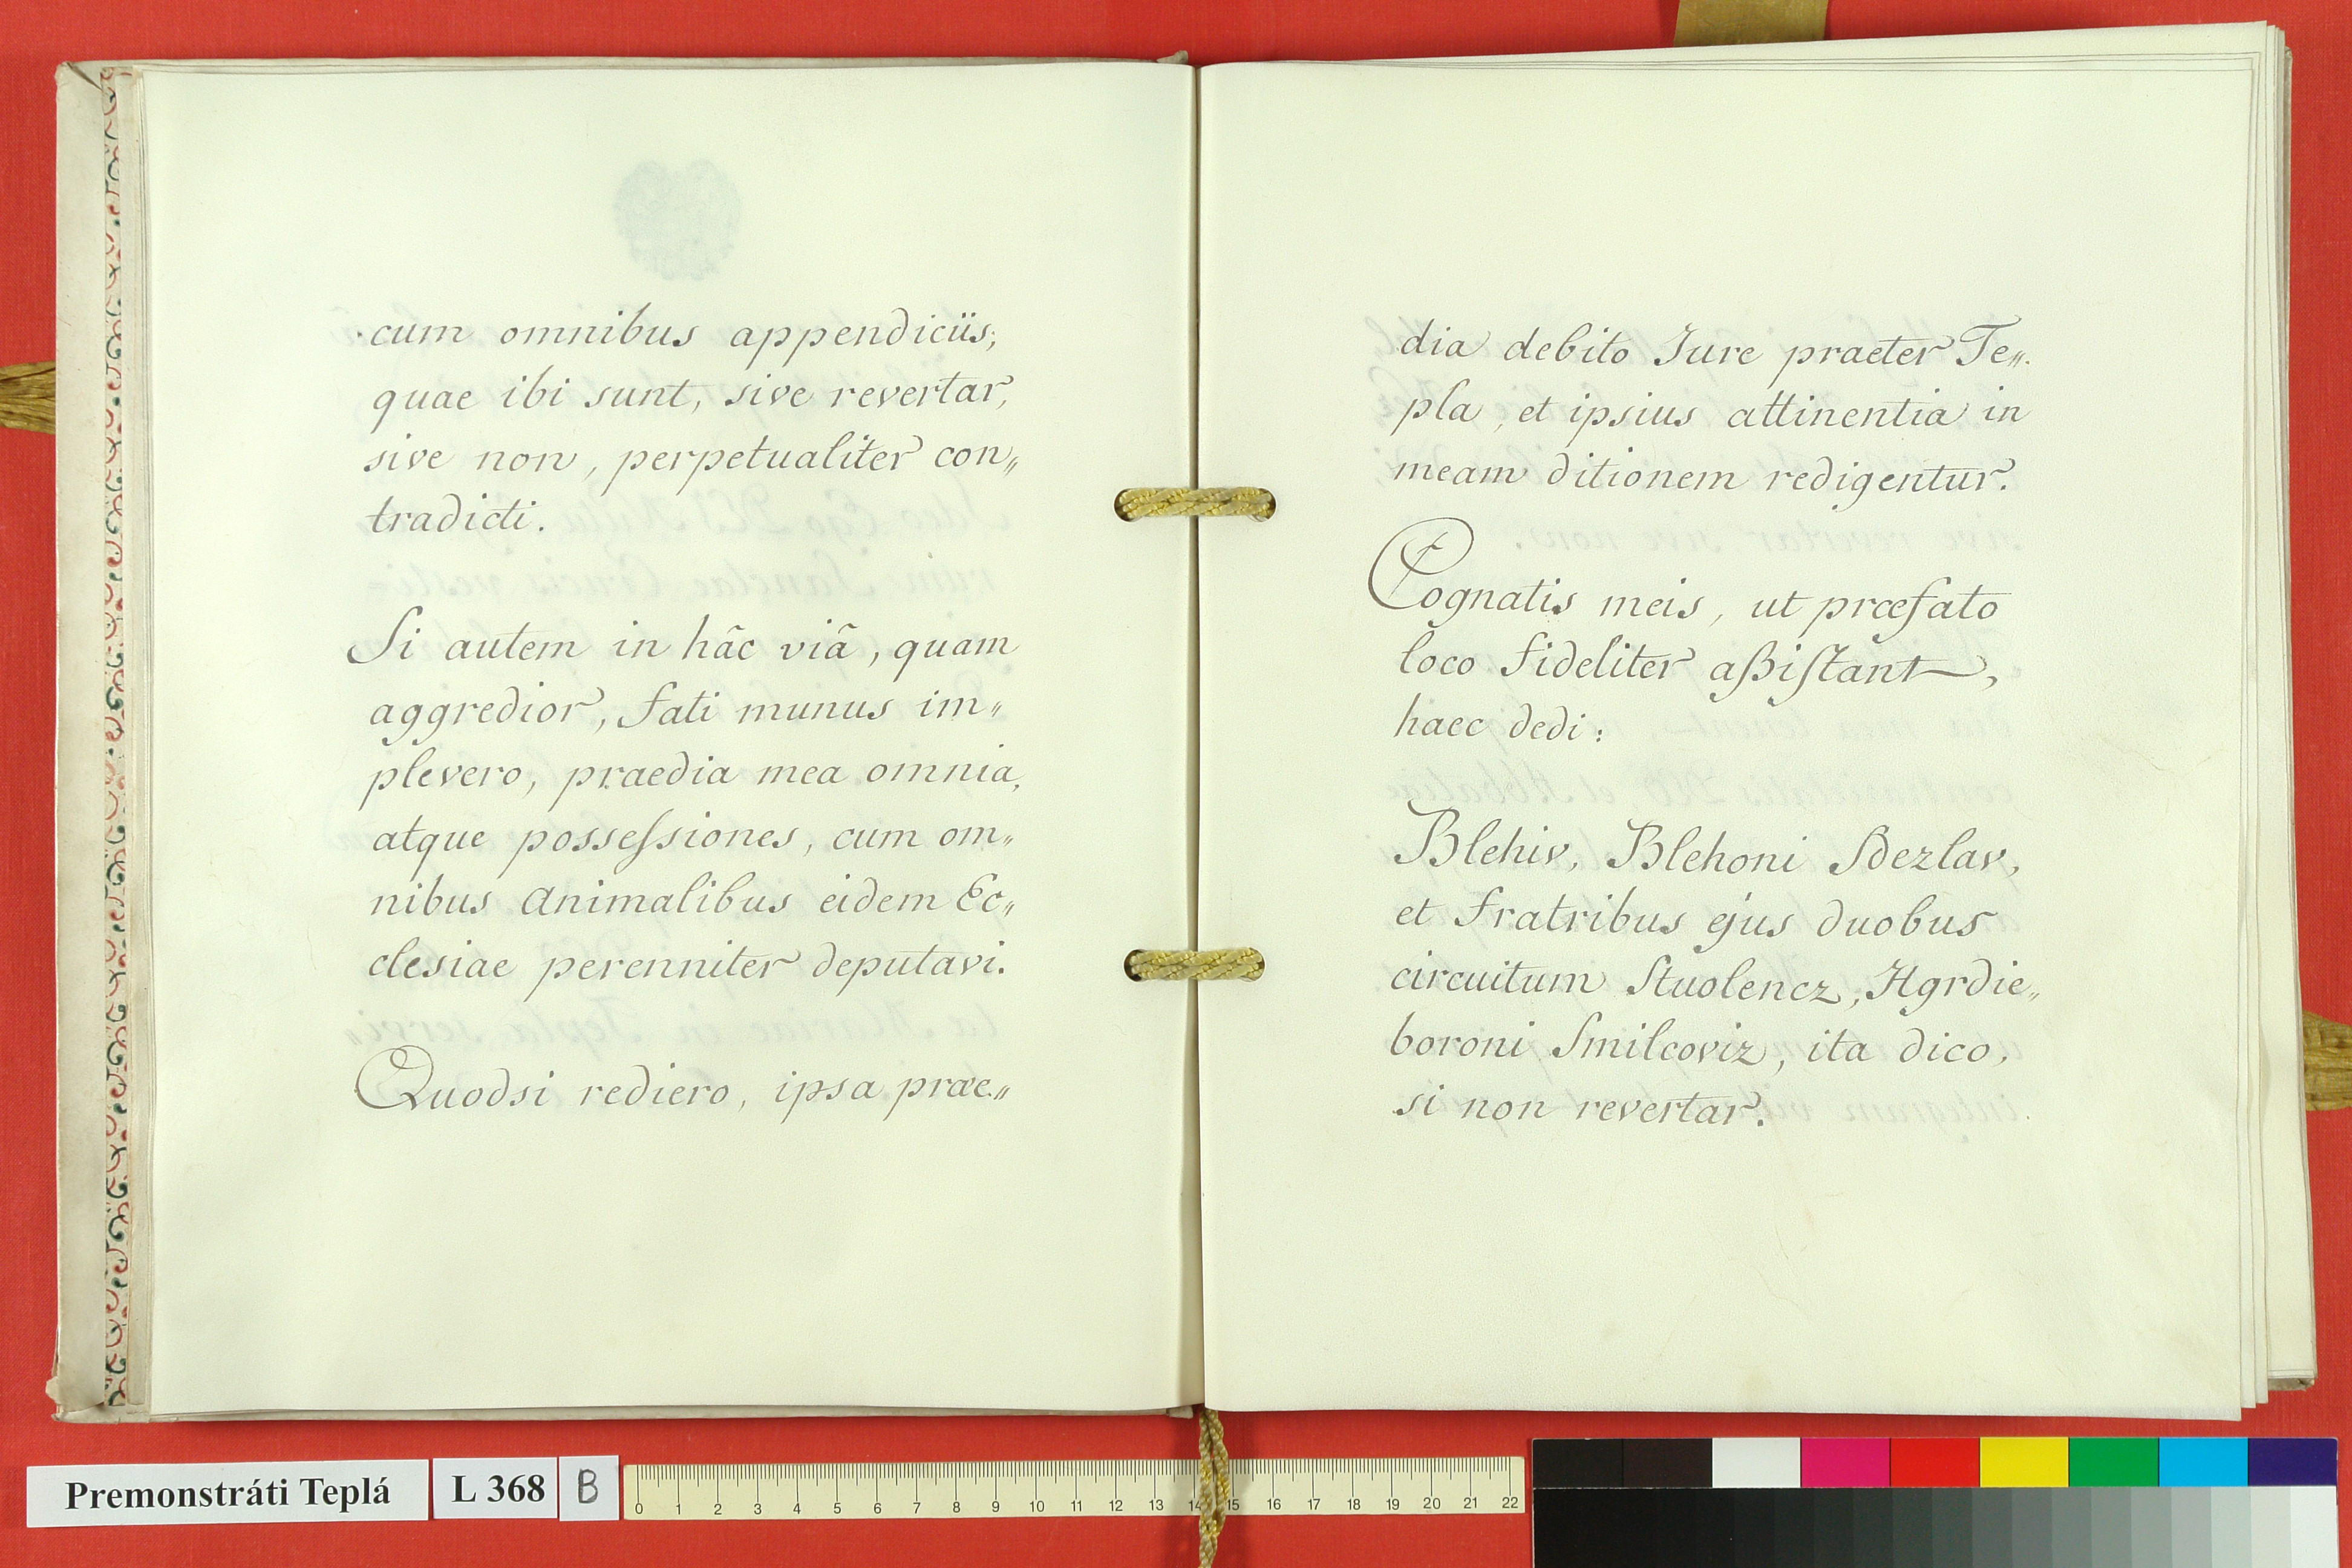 cum omnibus appendiciis;
quae ibi sunt, sive revertar,
sive non, perpetualiter con„
tradicti.
Si autem in hâc viâ, quam
aggredior, fati munus im„
plevero, praedia mea omnia,
atque possessiones, cum om„
nibus animalibus eidem Ec„
clesiae perenniter deputavi.
Quodsi rediero, ipsa prae„
dia debito Jure praeter Te„
pla, et ipsius attinentia in
meam ditionem redigentur.
Cognatis meis, ut præfato
loco fideliter aßistant,
haec dedi:
Blehiv, Blehoni Sdezlav,
et fratribus ejus duobus
circuitum Stuolencz, Hgrdie„
boroni Smilcoviz, ita dico,
si non revertar.
Premonstráti Teplá
L 368
B
0 1 2 3 4 5 6 7 8 9 10 11 12 13 14 15 16 17 18 19 20 21 22